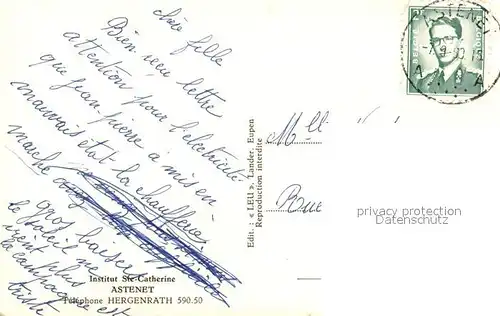 chère fille
Bien reçu lettre
attention pour l'électricité
que jean pierre a mis en
mauvais état la chaufferie
marche
gros baisers
le soleil ne
vient plus
la campagne est
triste
Institut Ste-Catherine
ASTENET
Téléphone HERGENRATH 590.50
Edit.: « LEU », Lander, Eupen
Reproduction interdite
Mlle
Rue
ASTENET
A A
BELGIE
privacy protection
Datenschutz